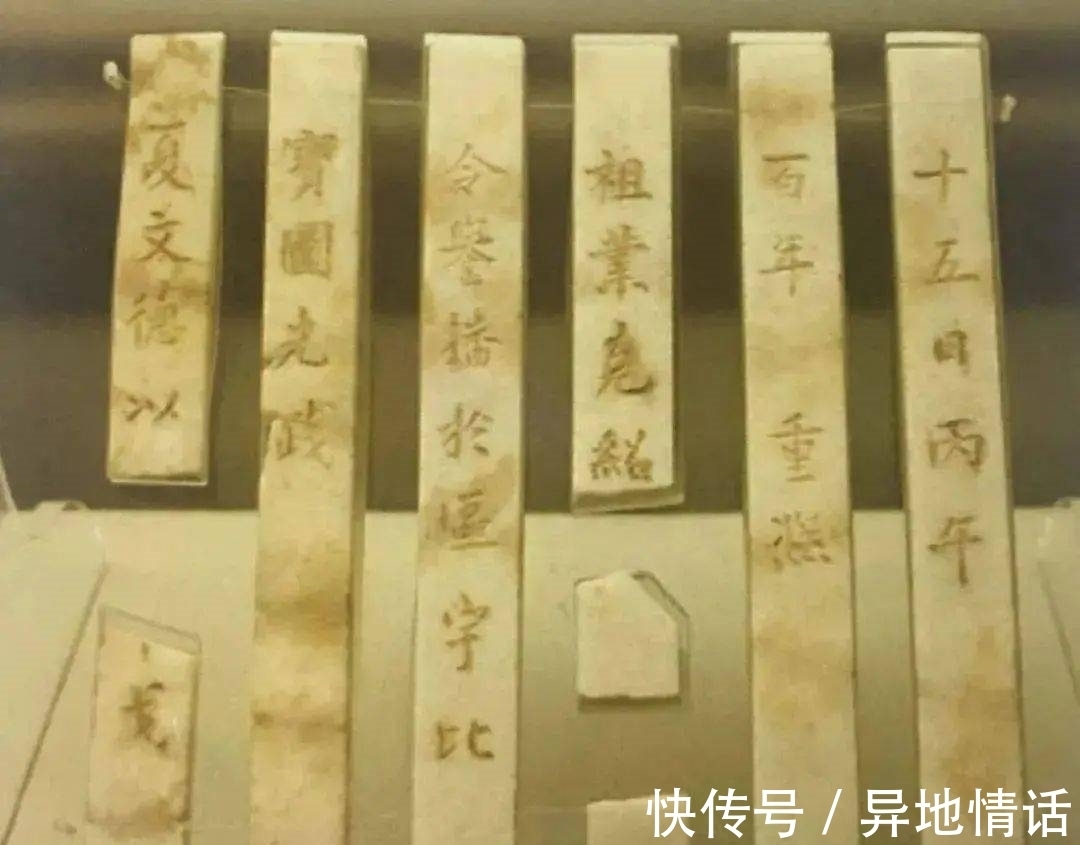 十五日丙午
百年重熙
祖業克紹
令譽播於宇比
寶圖光踐
夏文德以
快传号 / 异地情话